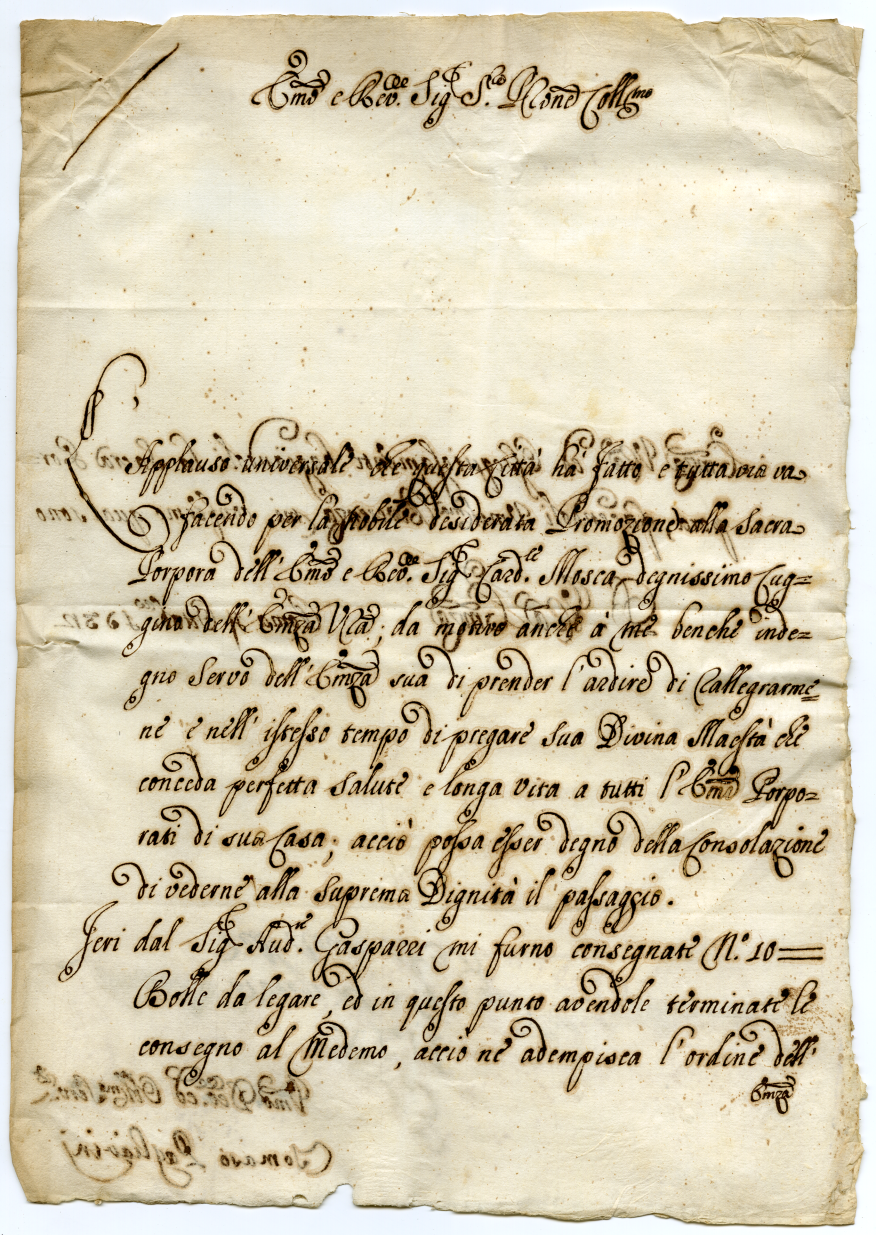 Emo e Revdo. Sig Sig.re Pron Collmo
L'Applauso universale che questa Città hà fatto, e tuttavia va
facendo per la nobile desiderata Promozione alla Sacra
Porpora dell' Emo e Revdo. Sig Card.le Mosca degnissimo Cug=
gino dell' Emza Vra; da motivo anche à me benche inde=
gno servo dell' Emza sua di prender l'ardire di rallegrarme=
ne e nell' istesso tempo di pregare sua Divina Maestà che
conceda perfetta salute e longa vita a tutti l' Emi Porpo=
rati di sua Casa, acciò possa esser degno della Consolazione
di vederne alla suprema Dignità il passaggio.
Ieri dal Sig Aud.re Gasparri mi furno consegnate N.o 10=
Bolle da legare, ed in questo punto avendole terminate le
consegno al Medemo, acciò ne adempisca l'ordine dell'
Emza